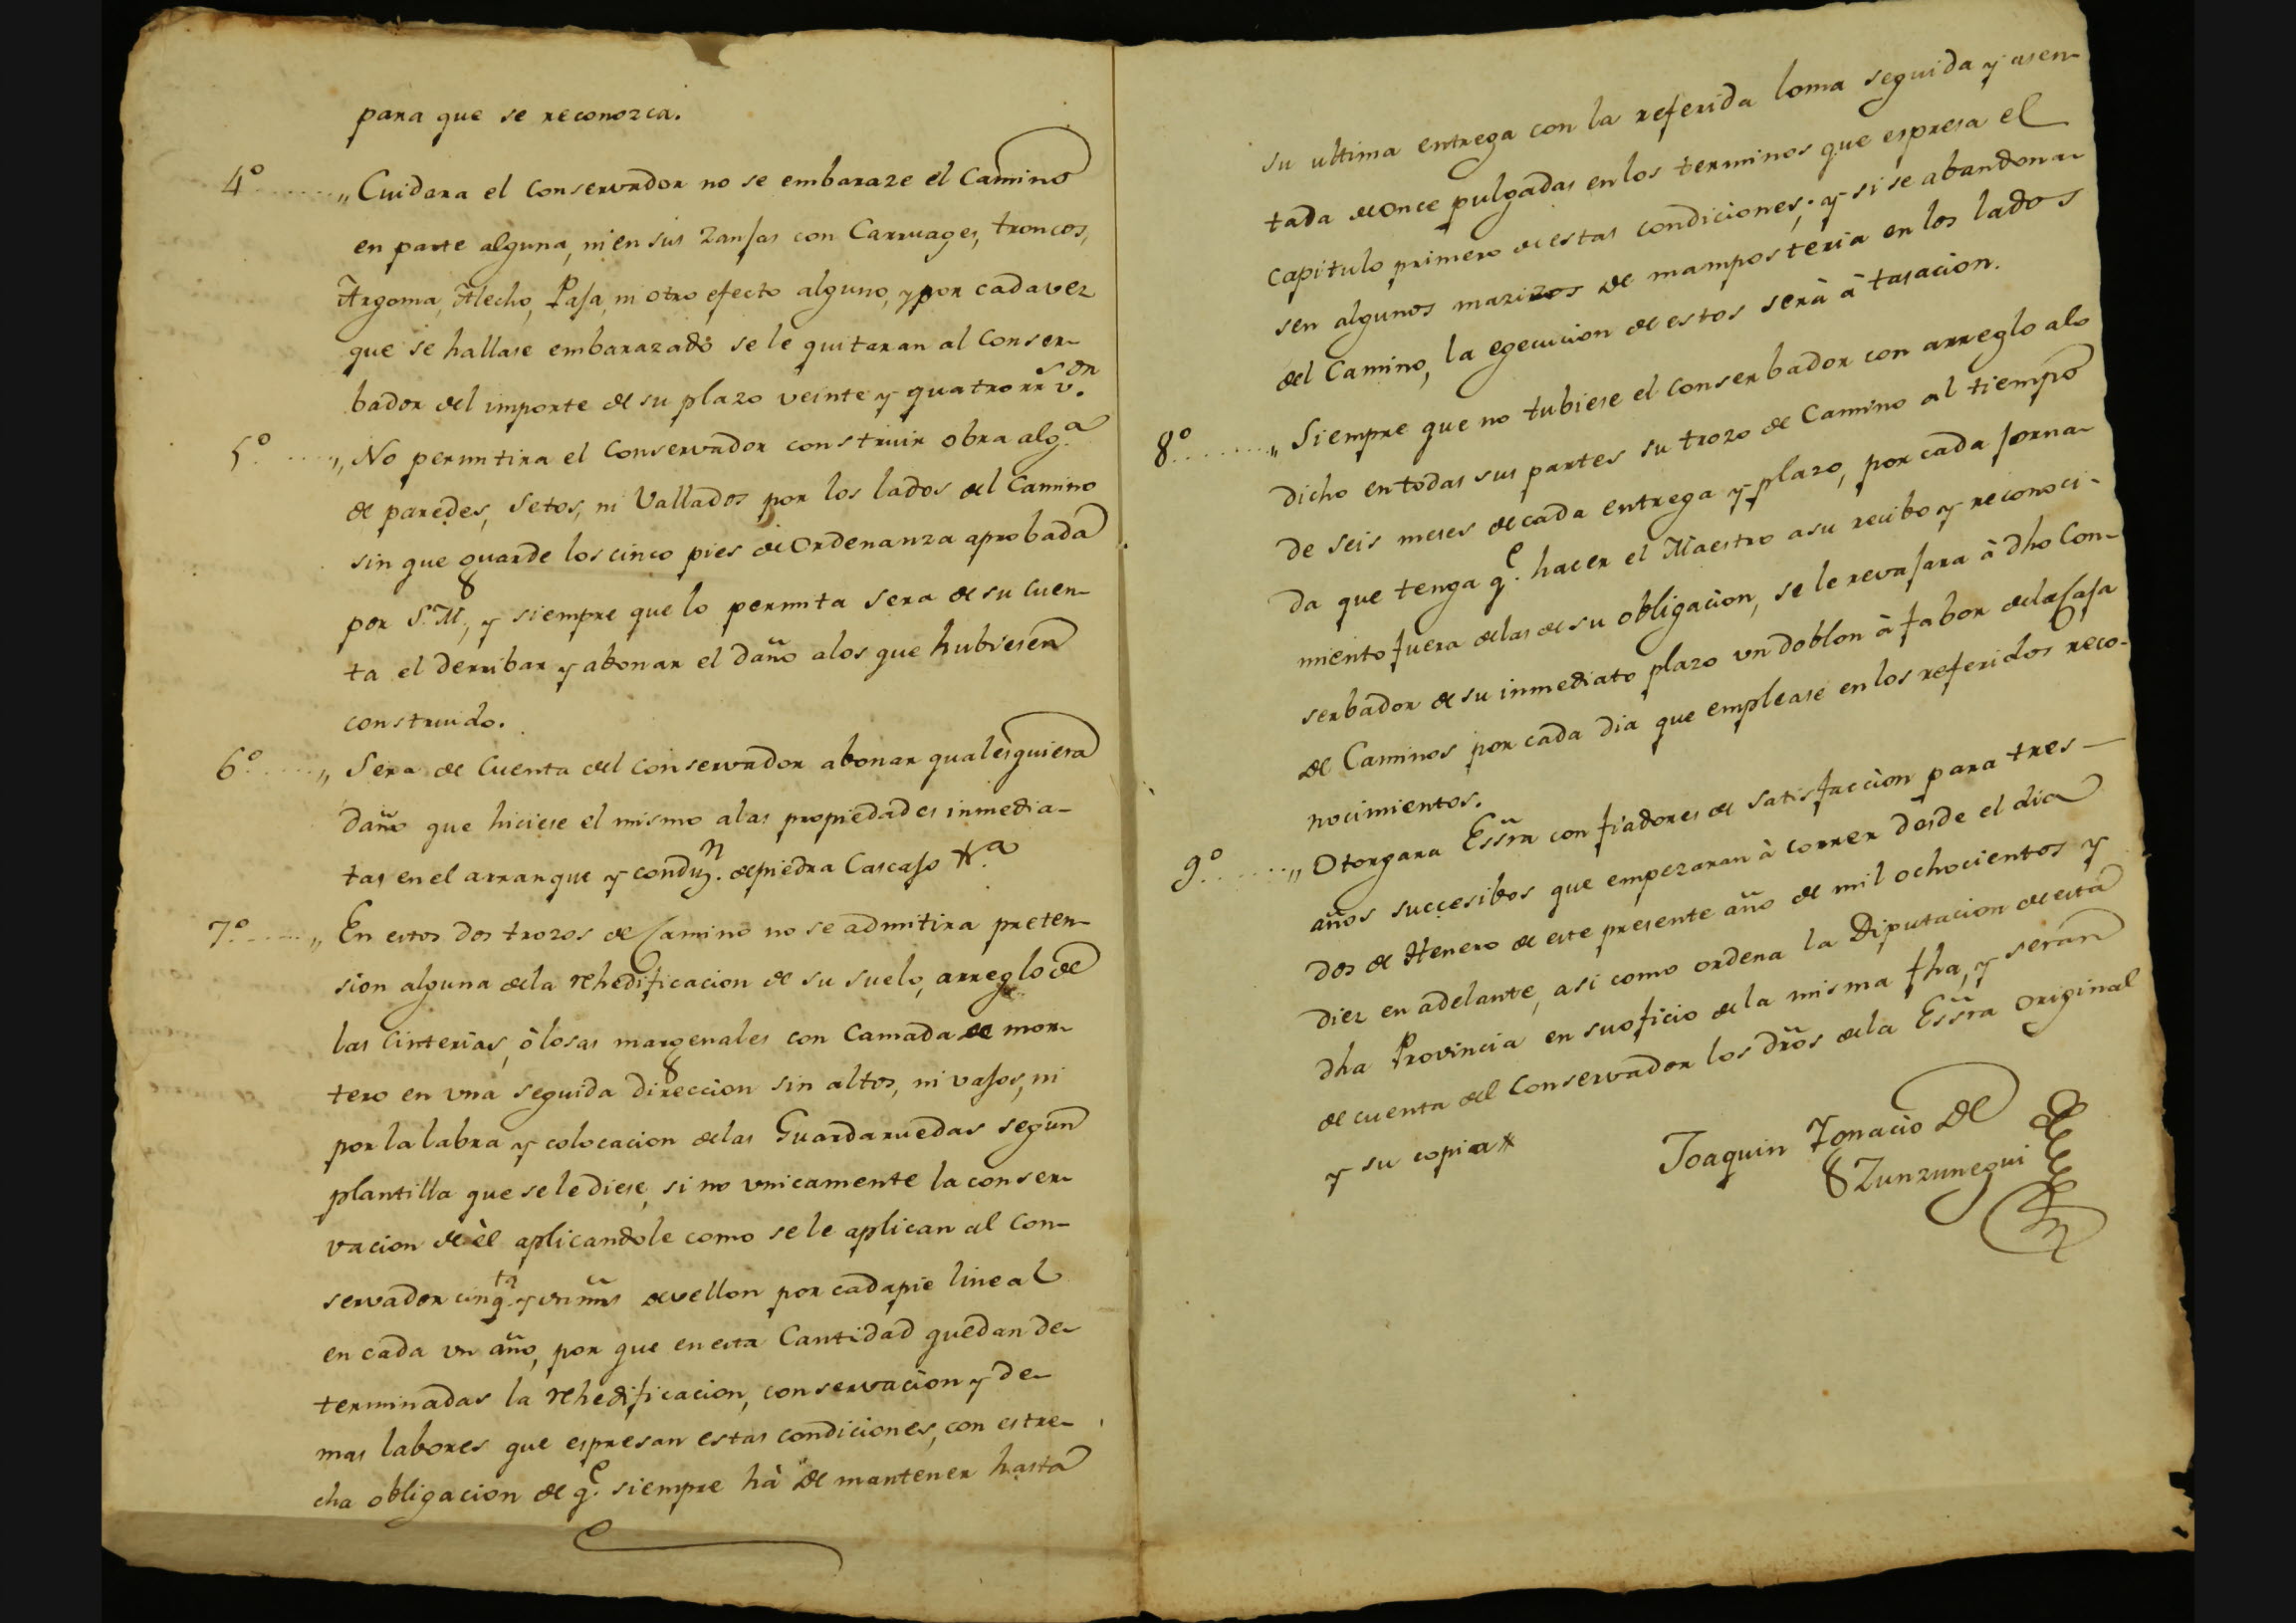 para que se reconozca.
4º........,, Cuidara el Conservador no se embaraze el Camino
en parte alguna, ni en sus zanjas con Carruages, troncos,
Argoma, Alecho, Paja, ni otro efecto alguno, y por cada vez
que se hallase embarazado se le quitaran al Conser-
bador del importe de su plazo veinte y quatro rrs von.
5º. ......,, No permitira el Conservador construir obra alga.
de paredes, Setos, ni Vallados por los lados del Camino
sin que guarde los cinco pies de Ordenanza aprobada
por S.M., y siempre que lo permita sera de su Cuen-
ta el derribar y abonar el daño alos que hubiesen
construido.
6º. ......,, Sera de Cuenta del Conservador abonar qualesquiera
daño que hiciese el mismo alas propiedades inmedia-
tas en el arranque y conduzn. de piedra Cascajo &.a
7º. ......,, En estos dos trozos de Camino no se admitira preten-
sion alguna dela rehedificacion de su suelo, arreglo de
las Cinterias, ò losas margenales con Camada de mor-
tero en una seguida direccion sin altos, ni vajos, ni
por la labra y colocacion delas Guardaruedas segun
plantilla que se le diese, si no unicamente la conser-
vacion de èl aplicandole como se le aplican al Con-
servador cinqta. y un mrs de vellon por cada pie lineal
en cada un año, por que en esta Cantidad quedan de-
terminadas la rehedificacion, conservacion y de-
mas labores que espresan estas condiciones, con estre-
cha obligacion de qe. siempre hà de mantener hasta
su ultima entrega con la referida loma seguida y asen-
tada de once pulgadas en los terminos que espresa el
Capitulo primero de estas condiciones; y si se abandonar-
sen algunos mazizos de mamposteria en los lados
del Camino, la egecucion de estos serà à tasacion.
8º.........,, Siempre que no tubiese el conserbador con arreglo alo
dicho en todas sus partes su trozo de Camino al tiempo
de seis meses de cada entrega y plazo, por cada jorna-
da que tenga qe. hacer el Maestro a su recibo y reconoci-
miento fuera delas de su obligacion, se le revajara à dho Con-
serbador de su inmediato plazo un doblon à fabor dela Caja
de Caminos por cada dia que emplease en los referidos reco-
nocimientos.
9º.......,, Otorgara Essra con fiadores de satisfaccion para tres
años succesibos que empezaran à correr desde el dia
dos de Henero de este presente año de mil ochocientos y
diez en adelante, asi como ordena la Diputacion de esta
dha Provincia en su oficio dela misma fha, y seràn
de cuenta del Conservador los drõs dela Essra original
y su copia
Joaquin Ignacio de
Zunzunegui